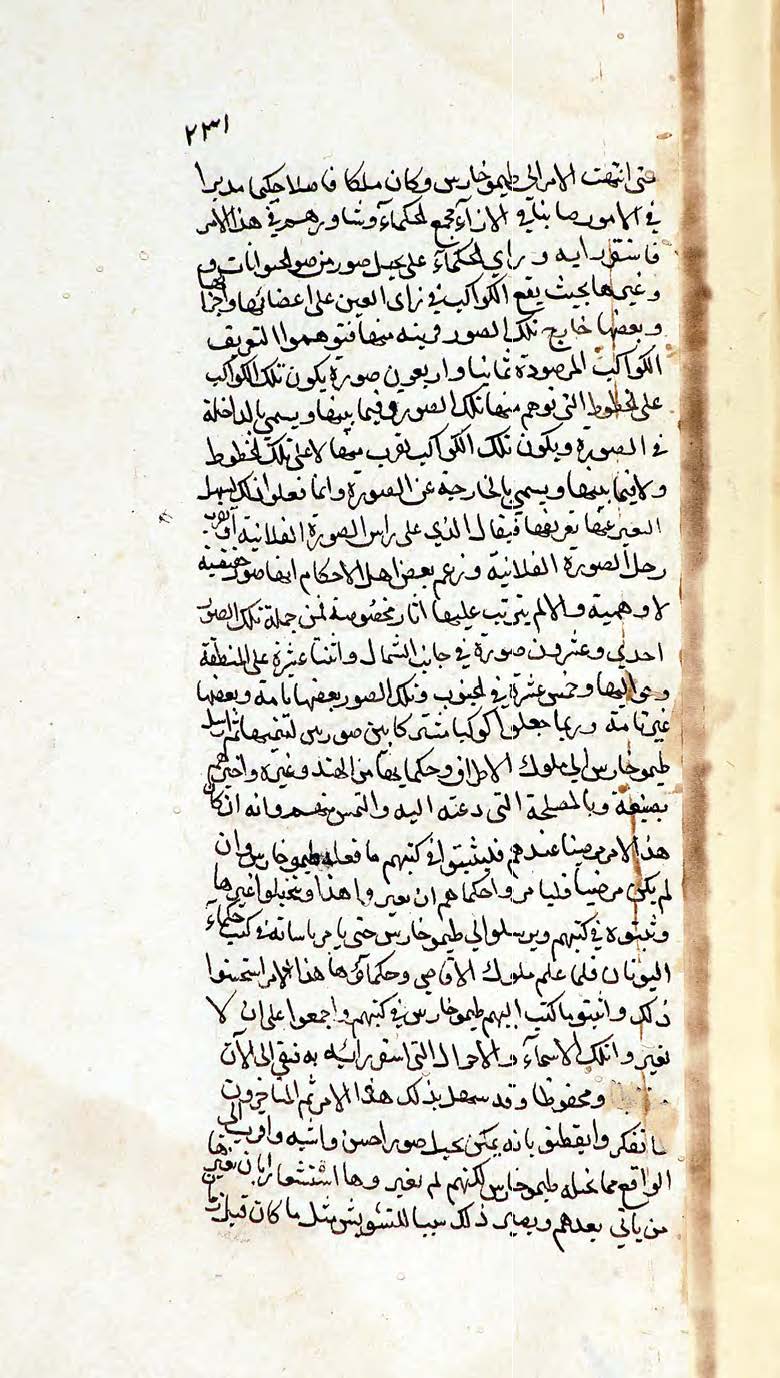 ٢٣١
حتى انتهت الامر الى طيموخارس وكان ملكا فاضلا حكيما مدبرا
في الامور صائبا في الاراء فجمع الحكماء وشاورهم في هذا الامر
فاستقر رايه وراي الحكماء على تخيل صور من صور الحيوانات
وغيرها بحيث يقع الكواكب في راى العين على اعضائها واجزائها
وبعضها خارج تلك الصور قريبة منها فتوهموا التعريف
الكواكب المرصودة ثمانيا واربعين صورة يكون تلك الكواكب
على الخطوط التى توهم منها تلك الصور وفيما بينها ويسمى بالداخلة
في الصورة ويكون تلك الكواكب بقرب منها لا على تلك الخطوط
ولا فيما بينها ويسمى بالخارجة عن الصورة وانما فعلوا ذلك ليسهل
التعبير عنها تعريفها فيقال الذي على راس الصورة الفلانية او بقرب
رجل الصورة الفلانية وزعم بعض اهل الاحكام انها صور حقيقية
لا وهمية والا لم يترتب عليها اثار مخصوصة فمن جملة تلك الصور
احدي وعشرون صورة في جانب الشمال واثنتا عشرة على المنطقة
وحواليها وخمس عشرة في الجنوب وتلك الصور بعضها تامة وبعضها
غير تامة وربما جعلوا كوكبا مشتركا بين صورتين لتتميمها ثم ارسل
طيموخارس الى ملوك الاطراف وحكمايها من الهند وغيره واخبرهم
بصنيعه وبالمصلحة التى دعته اليه والتمس منهم وانه ان كان
هذا الامر مرضيا عندهم فليثبتوا في كتبهم ما فعله طيموخارس وان
لم يكن مرضيا فليامروا حكماهم ان يغيروا هذا ويتخيلوا غيرها
وثبتوه في كتبهم ويرسلوا الي طيموخارس حتى يامر باثباته في كتب حكماء
اليونان فلما علم ملوك الاقاصي وحكماؤها هذا الامر استحسنوا
ذلك واثبتوا ما كتب اليهم طيموخارس في كتبهم واجمعوا على ان لا
يغيروا تلك الاسماء والاحوال التى استقر رائيه به فبقي الى الآن
ومحفوظا وقد سهل بذلك هذا الامر ثم المتاخرون
ما تفكروا يقطنوا بانه يمكن تخيل صور احسن واشبه واقرب الى
الواقع مما تخيله طيموخارس لكنهم لم يغيروها استشعارا بان يغيرها
من ياتي بعدهم ويصير ذلك سببا للتشويش مثل ما كان قبل زمان